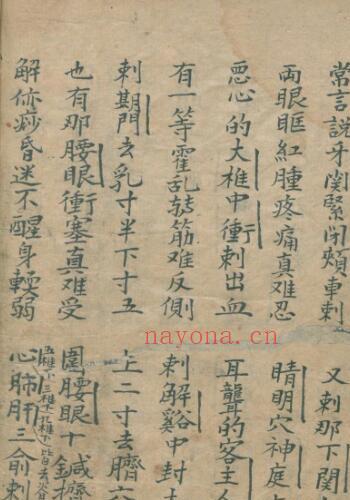 常言說牙関緊閉頰車刺
又刺那下関
兩眼眶紅腫疼痛真难忍
睛明穴神庭
悪心的大椎中衝刺出血
耳聾的客主
有一等霍乱转筋难反側
刺解谿中封
刺期門去乳寸半下寸五
上二寸去臍六
也有那腰眼衝塞真难受
圍腰眼十鍼
解㑊痧昏迷不醒身輕弱
心肺肝三俞刺
nayona.cn